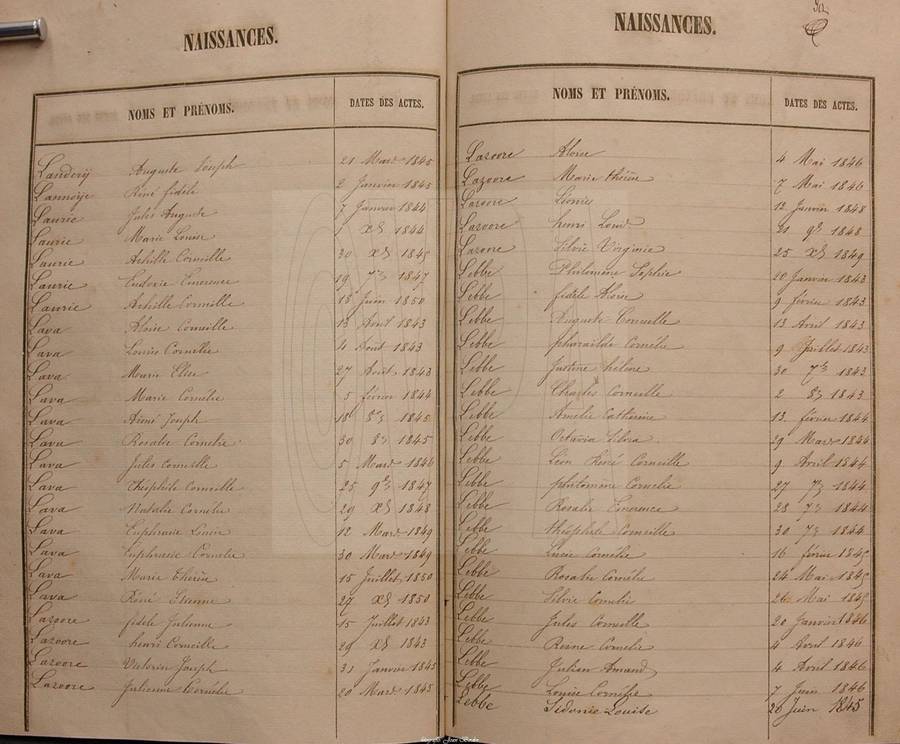 NAISSANCES.
NOMS ET PRÉNOMS. DATES DES ACTES.
Landerij Auguste Joseph 21 Mars 1845
Lannoije René fidèle 2 Janvier 1845
Laurie Jules Auguste 7 Janvier 1844
Laurie Marie Louise 1 Xbre 1844
Laurie Achille Corneille 30 Xbre 1845
Laurie Ludovie Emerence 19 7bre 1847
Laurie Achille Corneille 15 Juin 1850
Lava Aloïse Corneille 13 Aout 1843
Lava Louise Cornélie 4 Aout 1843
Lava Marie Elise 27 Août 1843
Lava Marie Cornélie 5 févrer 1844
Lava Aimé Joseph 18 8bre 1845
Lava Rosalie Cornelie 30 8bre 1845
Lava Jules Corneille 5 Mars 1846
Lava Théophile Corneille 25 9bre 1847
Lava Natalie Cornelie 29 Xbre 1848
Lava Euphrasie Louise 12 Mars 1849
Lava Euphrasie Cornelie 30 Mars 1849
Lava Marie Thérèse 15 Juillet 1850
Lava René Etienne 27 Xbre 1850
Lazoore fidele Julienne 15 Juillet 1843
Lazoore henri Corneille 29 Xbre 1843
Lazoore Valerie Joseph 31 Janvier 1845
Lazoore Julienne Cornélie 20 Mars 1845
NAISSANCES.
NOMS ET PRÉNOMS. DATES DES ACTES.
Lazoore Aloïse 4 Mai 1846
Lazoore Marie thérèse 7 Mai 1846
Lazoore Léonie 12 Janvier 1848
Lazoore henri Louis 21 9bre 1848
Lazoore Silvie Virginie 25 Xbre 1849
Lebbe Philomène Sophie 20 Janvier 1843
Lebbe fidèle Aloïse 9 févrer 1843
Lebbe Auguste Corneille 13 Avril 1843
Lebbe pharaïlde Cornélie 9 Juillet 1843
Lebbe Justine hélène 30 7bre 1843
Lebbe Charles Corneille 2 8bre 1843
Lebbe Amelie Catherine 13 févrer 1844
Lebbe Octavia Silvia 29 Mars 1844
Lebbe Léon René Corneille 9 Avril 1844
Lebbe philomène Cornelie 27 7bre 1844
Lebbe Rosalie Emerence 28 7bre 1844
Lebbe théophile Corneille 30 7bre 1844
Lebbe Lucie Cornélie 16 févrer 1845
Lebbe Rosalie Cornélie 24 Mai 1845
Lebbe Silvie Cornelie 26 Mai 1845
Lebbe Jules Corneille 20 Janvier 1846
Lebbe Reine Cornelie 4 Avril 1846
Lebbe Julian Amand 4 Avril 1846
Lebbe Louise Cornélie 7 Juin 1846
Lebbe Sidonie Louise 20 Juin 1845